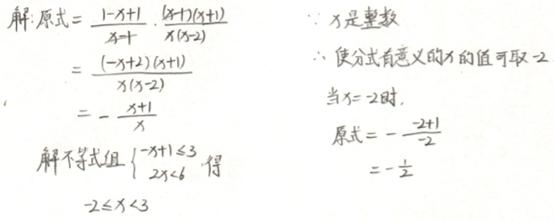 解:原式 = \frac{1-x+1}{x-1} · \frac{(x-1)(x+1)}{x(x-2)}
= \frac{(-x+2)(x+1)}{x(x-2)}
= - \frac{x+1}{x}
解不等式组 { -x+1≤3 2x<6 得
-2≤x<3
∵ x是整数
∴ 使分式有意义的x的值可取-2
当x=-2时,
原式 = - \frac{-2+1}{-2}
= - \frac{1}{2}